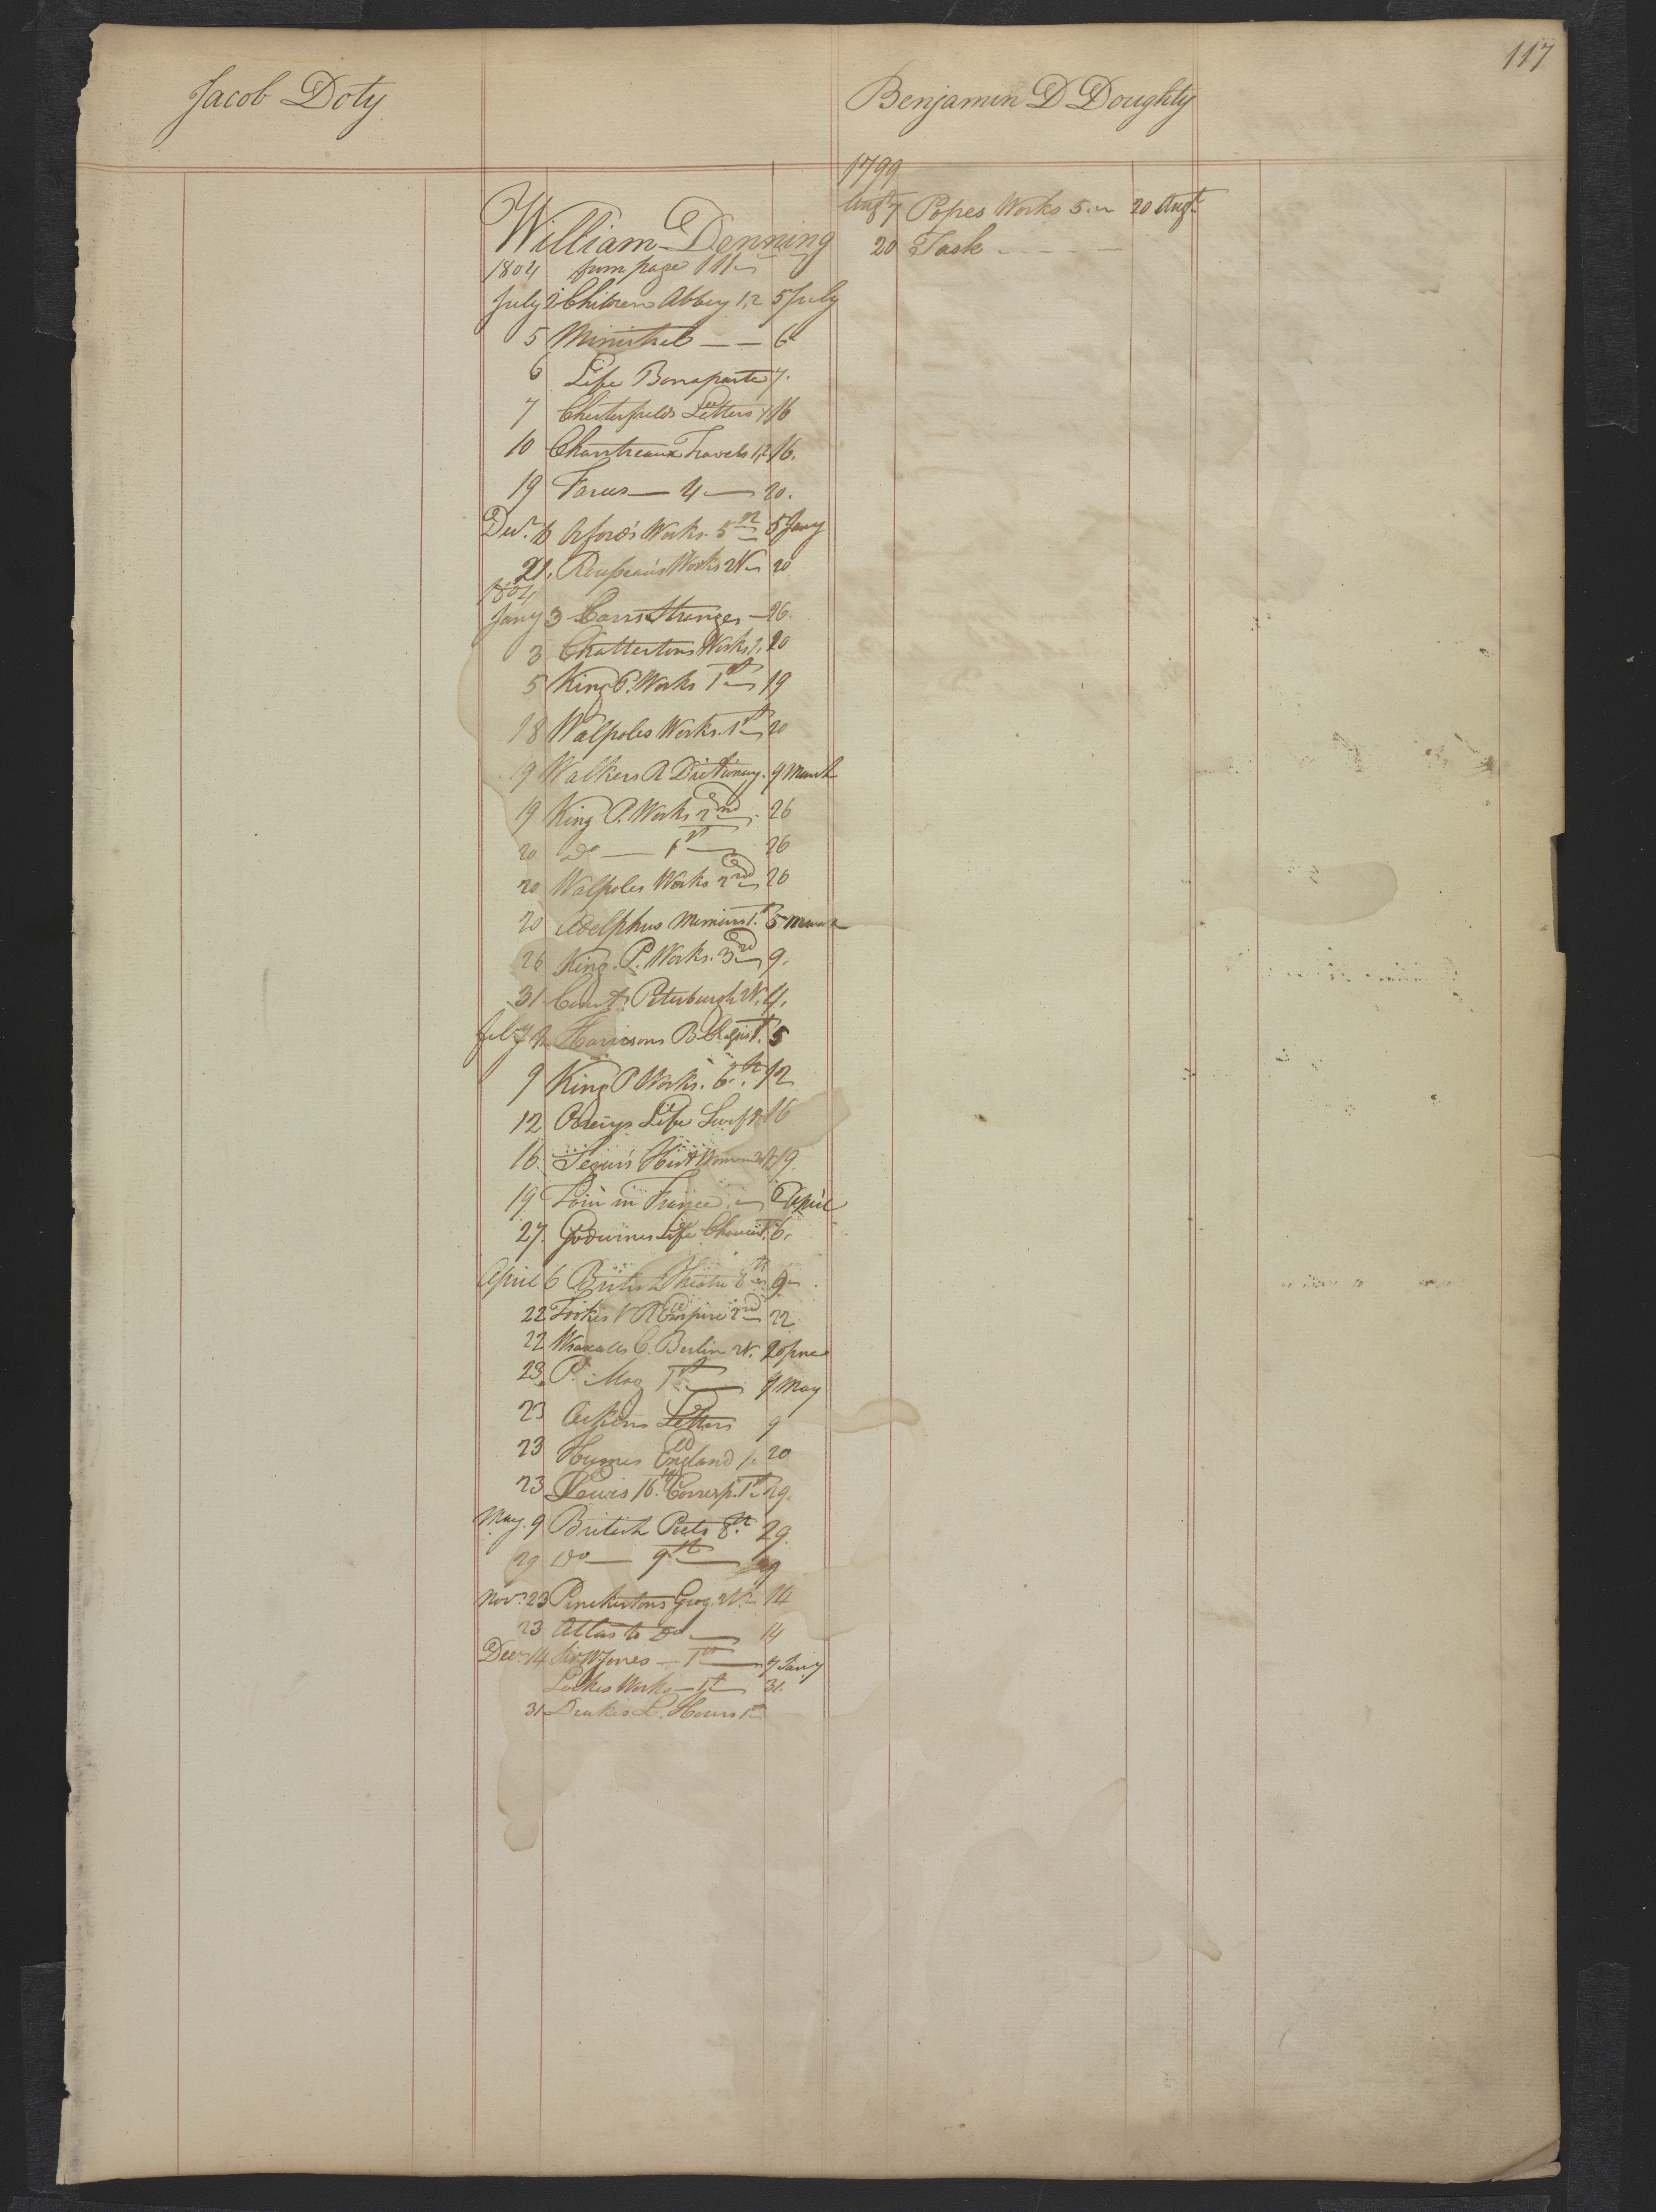 117
Jacob Doty
William Denning
1804 from page 111
July 2 Children Abbey 1,2 5 July
5 Minstrel — — 6
6 Life Bonaparte 7.
7 Chesterfields Letters 1 16
10 Chantreaux Travels 1,2 16.
19 Farces — 4 — 20.
Decr. 16 Orford's Works. 5th 5 Jany
21. Rousseau's Works 20
1804
Jany 3 Carrs Stranger — 26.
3 Chattertons Works 1, 20
5 King P. Works 1st 19
18 Walpoles Works. 1st 20
19 Walkers R Dictionary. 9 March
19 King P. Works 2nd. 26
20 Do — 1st — 26
20 Walpoles Works 2nd 26
20 Adelphus Memoirs 1st 5 March
26 King. P. Works. 3rd 9.
31 Court Petersburgh 4.
Feby Harrisons B 5
9 King P Works. 6th. 12
12 Life Swift 16
16. Segurs Hist Women 19.
19 in France. April
27. Godwins Life Chaucer 6.
April 6 British Theatre 8th 9
22 R Empire 2nd 22
22 Wraxalls C. Berlin 20 June
23. P. Mag 1st — 9 May
23 Aikens Letters 9
23 Humes England 1. 20
23 Lewis 16th Corresp. 1st 29.
May. 9 British Poets 8th 29.
29 Do — 9th — 29
Novr. 23 Pinckertons Geog. 14
23 Atlas to Do — 14
Decr. 14 Sir W Jones — 1st — 7 Jany
Lockes Works — 1st 31.
31 Drakes L. Hours 1st
Benjamin D Doughty
1799
Augt 7 Popes Works 5. 20 Augt.
20 Task - - - -